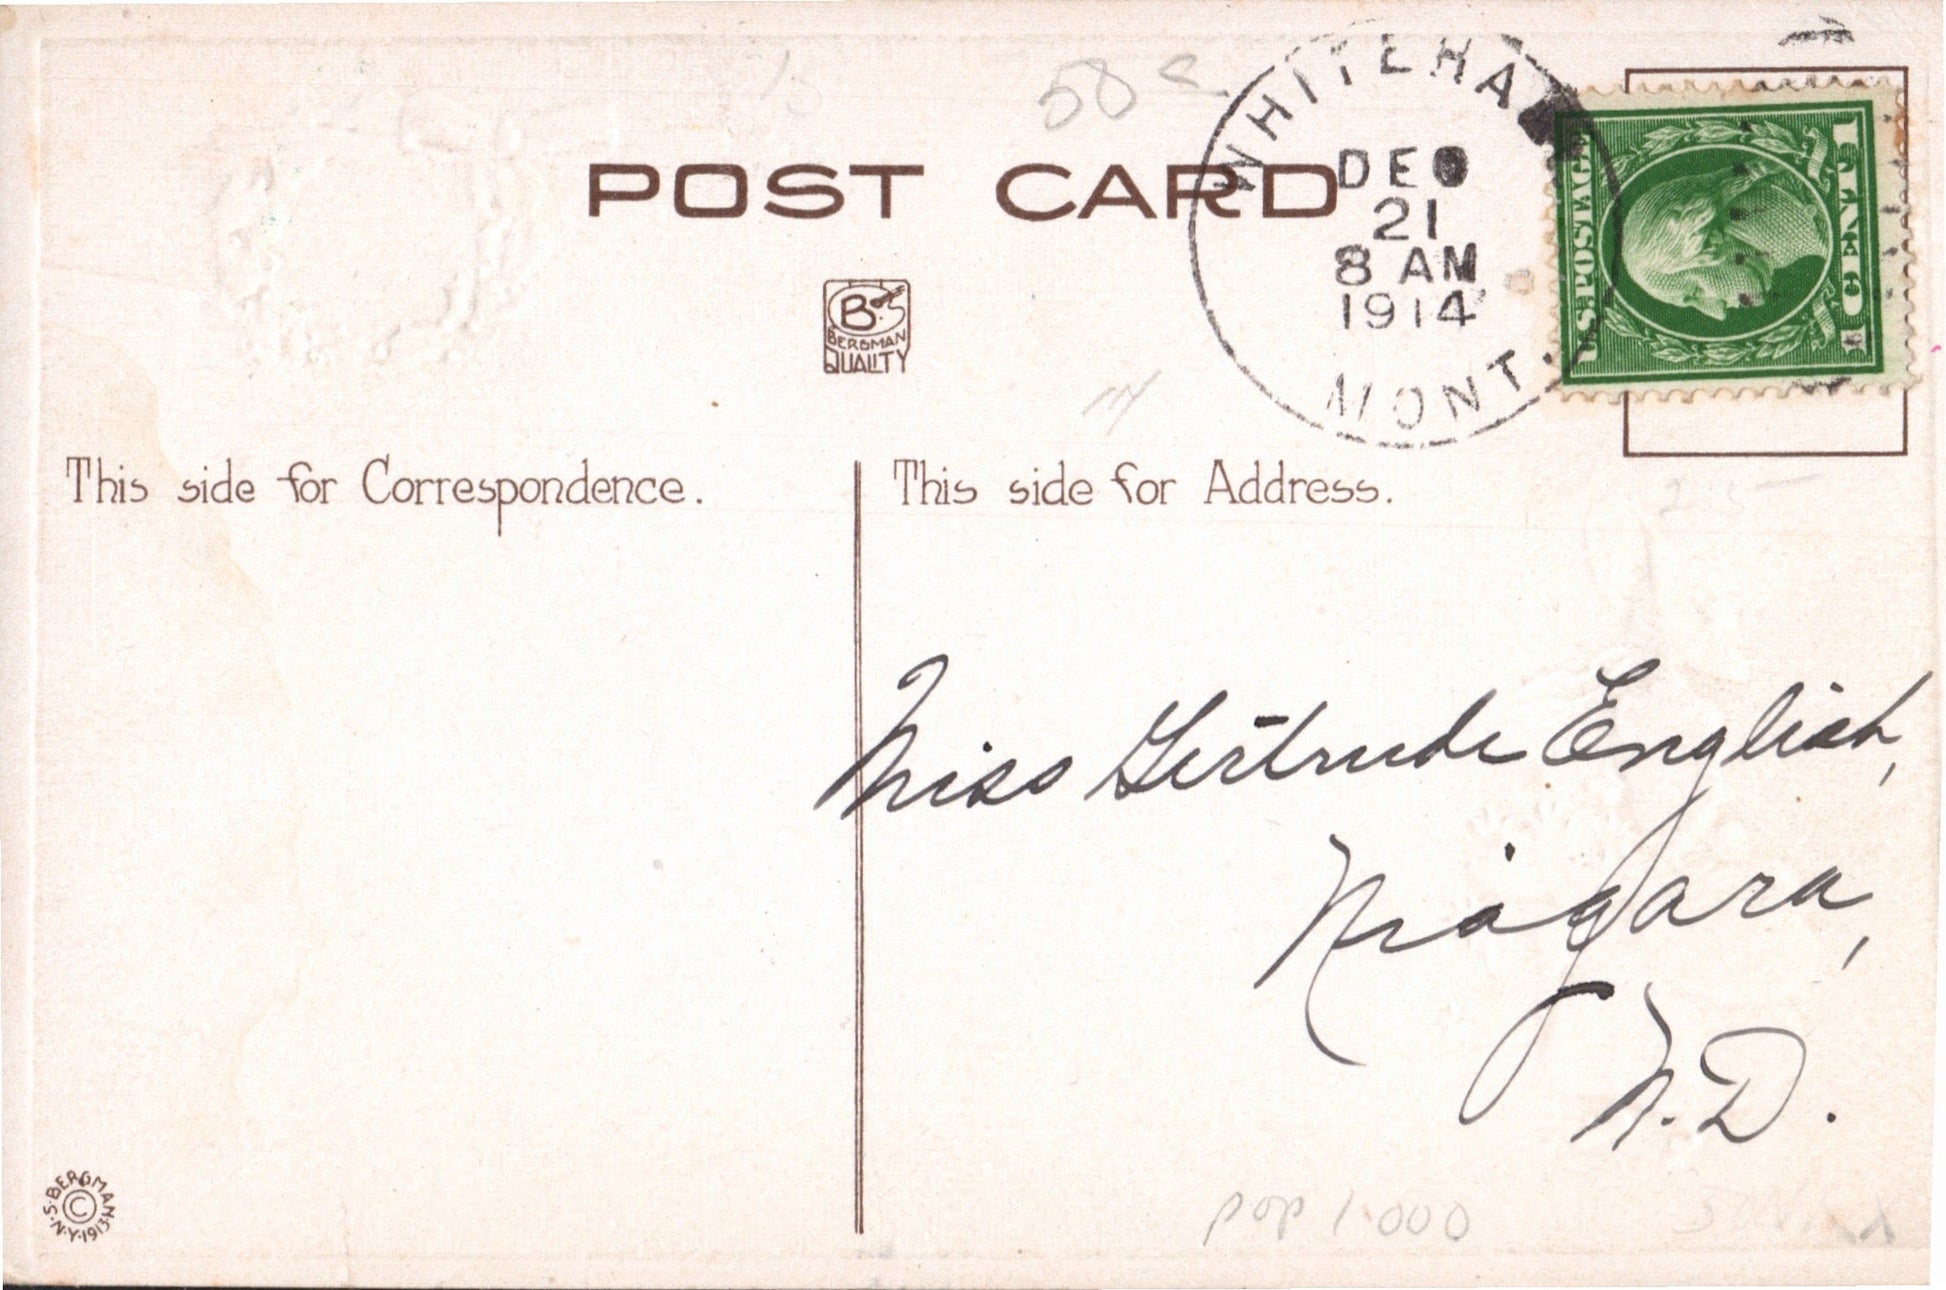 58 c
WHITEHALL
DEC
21
8 AM
1914
MONT.
U.S. POSTAGE
1 CENT 1
POST CARD
B.S
BERGMAN
QUALITY
This side for Correspondence.
This side for Address.
Miss Gertrude English,
Niagara,
N.D.
pop 1.000
S. BERGMAN N.Y. 1913
©